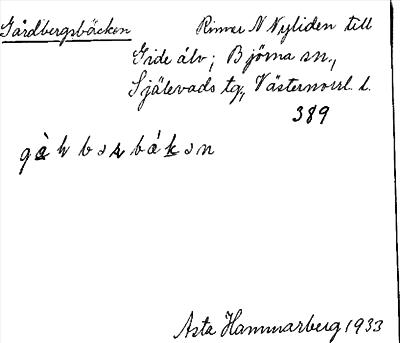 Gårdbergsbäcken Rinner N Nyliden till
Gide älv; Björna sn.,
Själevads tg., Västernorrl. l.
389
Asta Hammarberg 1933